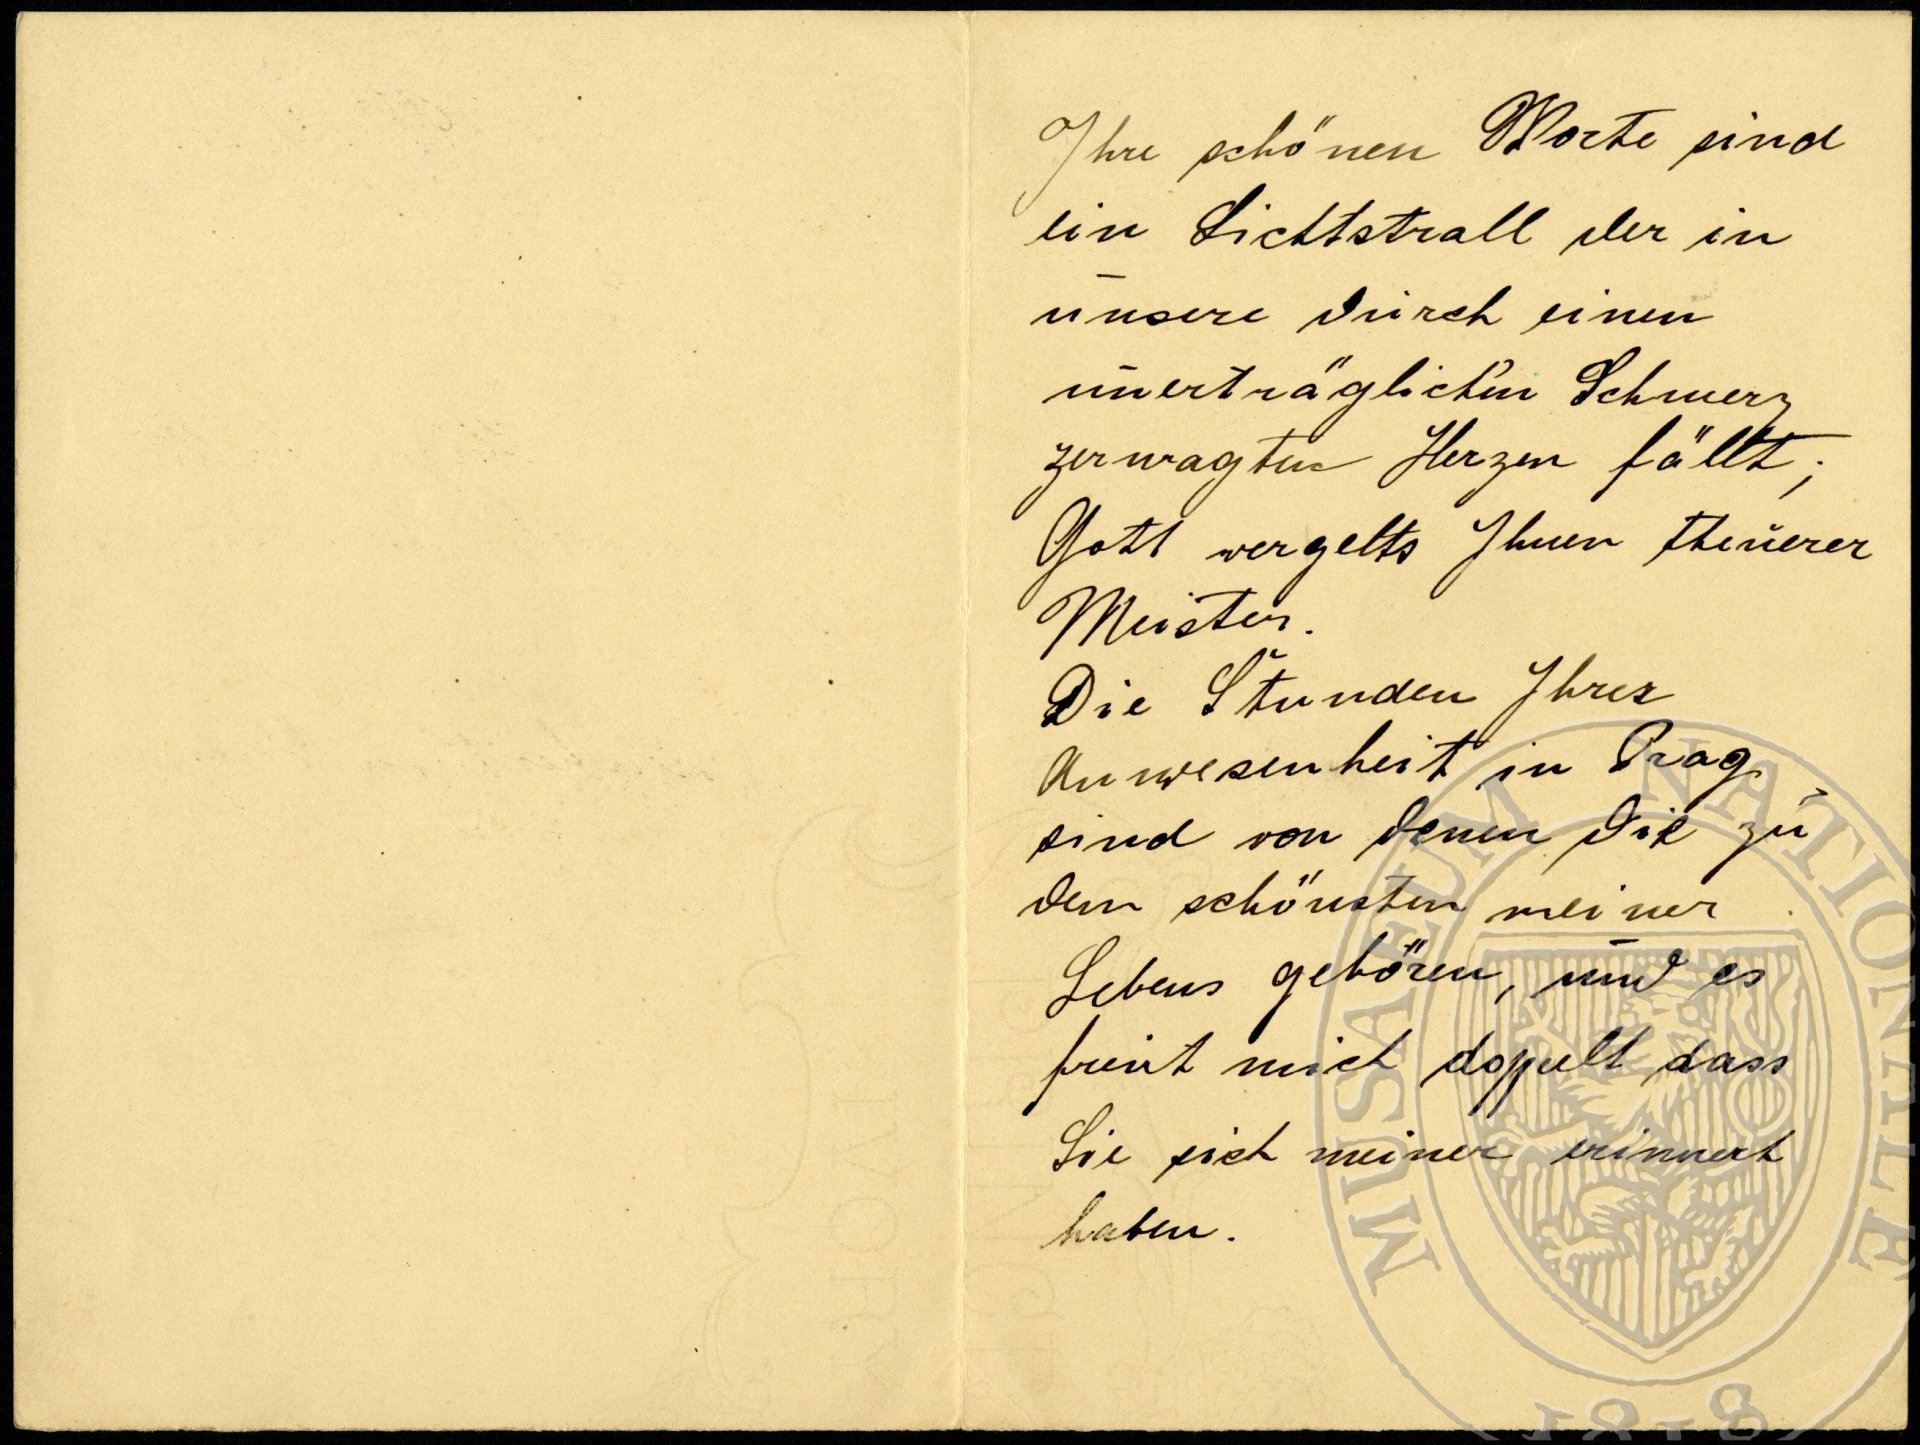 Ihre schönen Worte sind
ein Lichtstrall der in
unsere durch einen
unerträglichen Schmerz
zerwagten Herzen fällt;
Gott vergelts Ihnen theuerer
Meister.
Die Stunden Ihrer
Anwesenheit in Prag
sind von denen die zu
den schönsten meiner
Lebens gehören, und es
freut mich doppelt dass
Sie sich meiner erinnert
haben.
MUSAEUM NATIONALE
1818